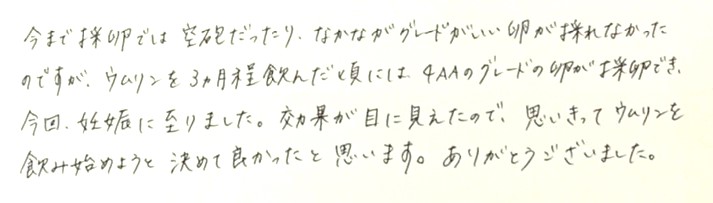 今まで採卵では 空砲だったり、なかなかグレードがいい卵が採れなかった
のですが、ウムリンを3ヵ月程飲んだ頃には、4AAのグレードの卵が採卵でき、
今回、妊娠に至りました。効果が目に見えたので、思いきってウムリンを
飲み始めようと決めて良かったと思います。ありがとうございました。